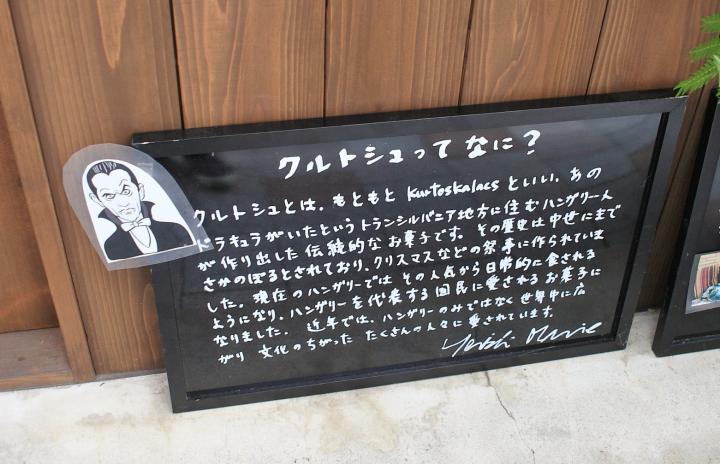 クルトシュって なに？
クルトシュとは、もともと Kurtoskalacs といい、あの
ドラキュラがいたという トランシルバニア地方に住む ハンガリー人
が 作り出した 伝統的な お菓子です。その歴史は中世にまで
さかのぼるとされており、クリスマスなどの祭事に作られていま
した。現在のハンガリーでは その人気から日常的に食される
ようになり、ハンガリーを代表する国民に愛されるお菓子に
なりました。 近年では、ハンガリーのみではなく 世界中に広
がり 文化のちがった たくさんの人々に愛されています。